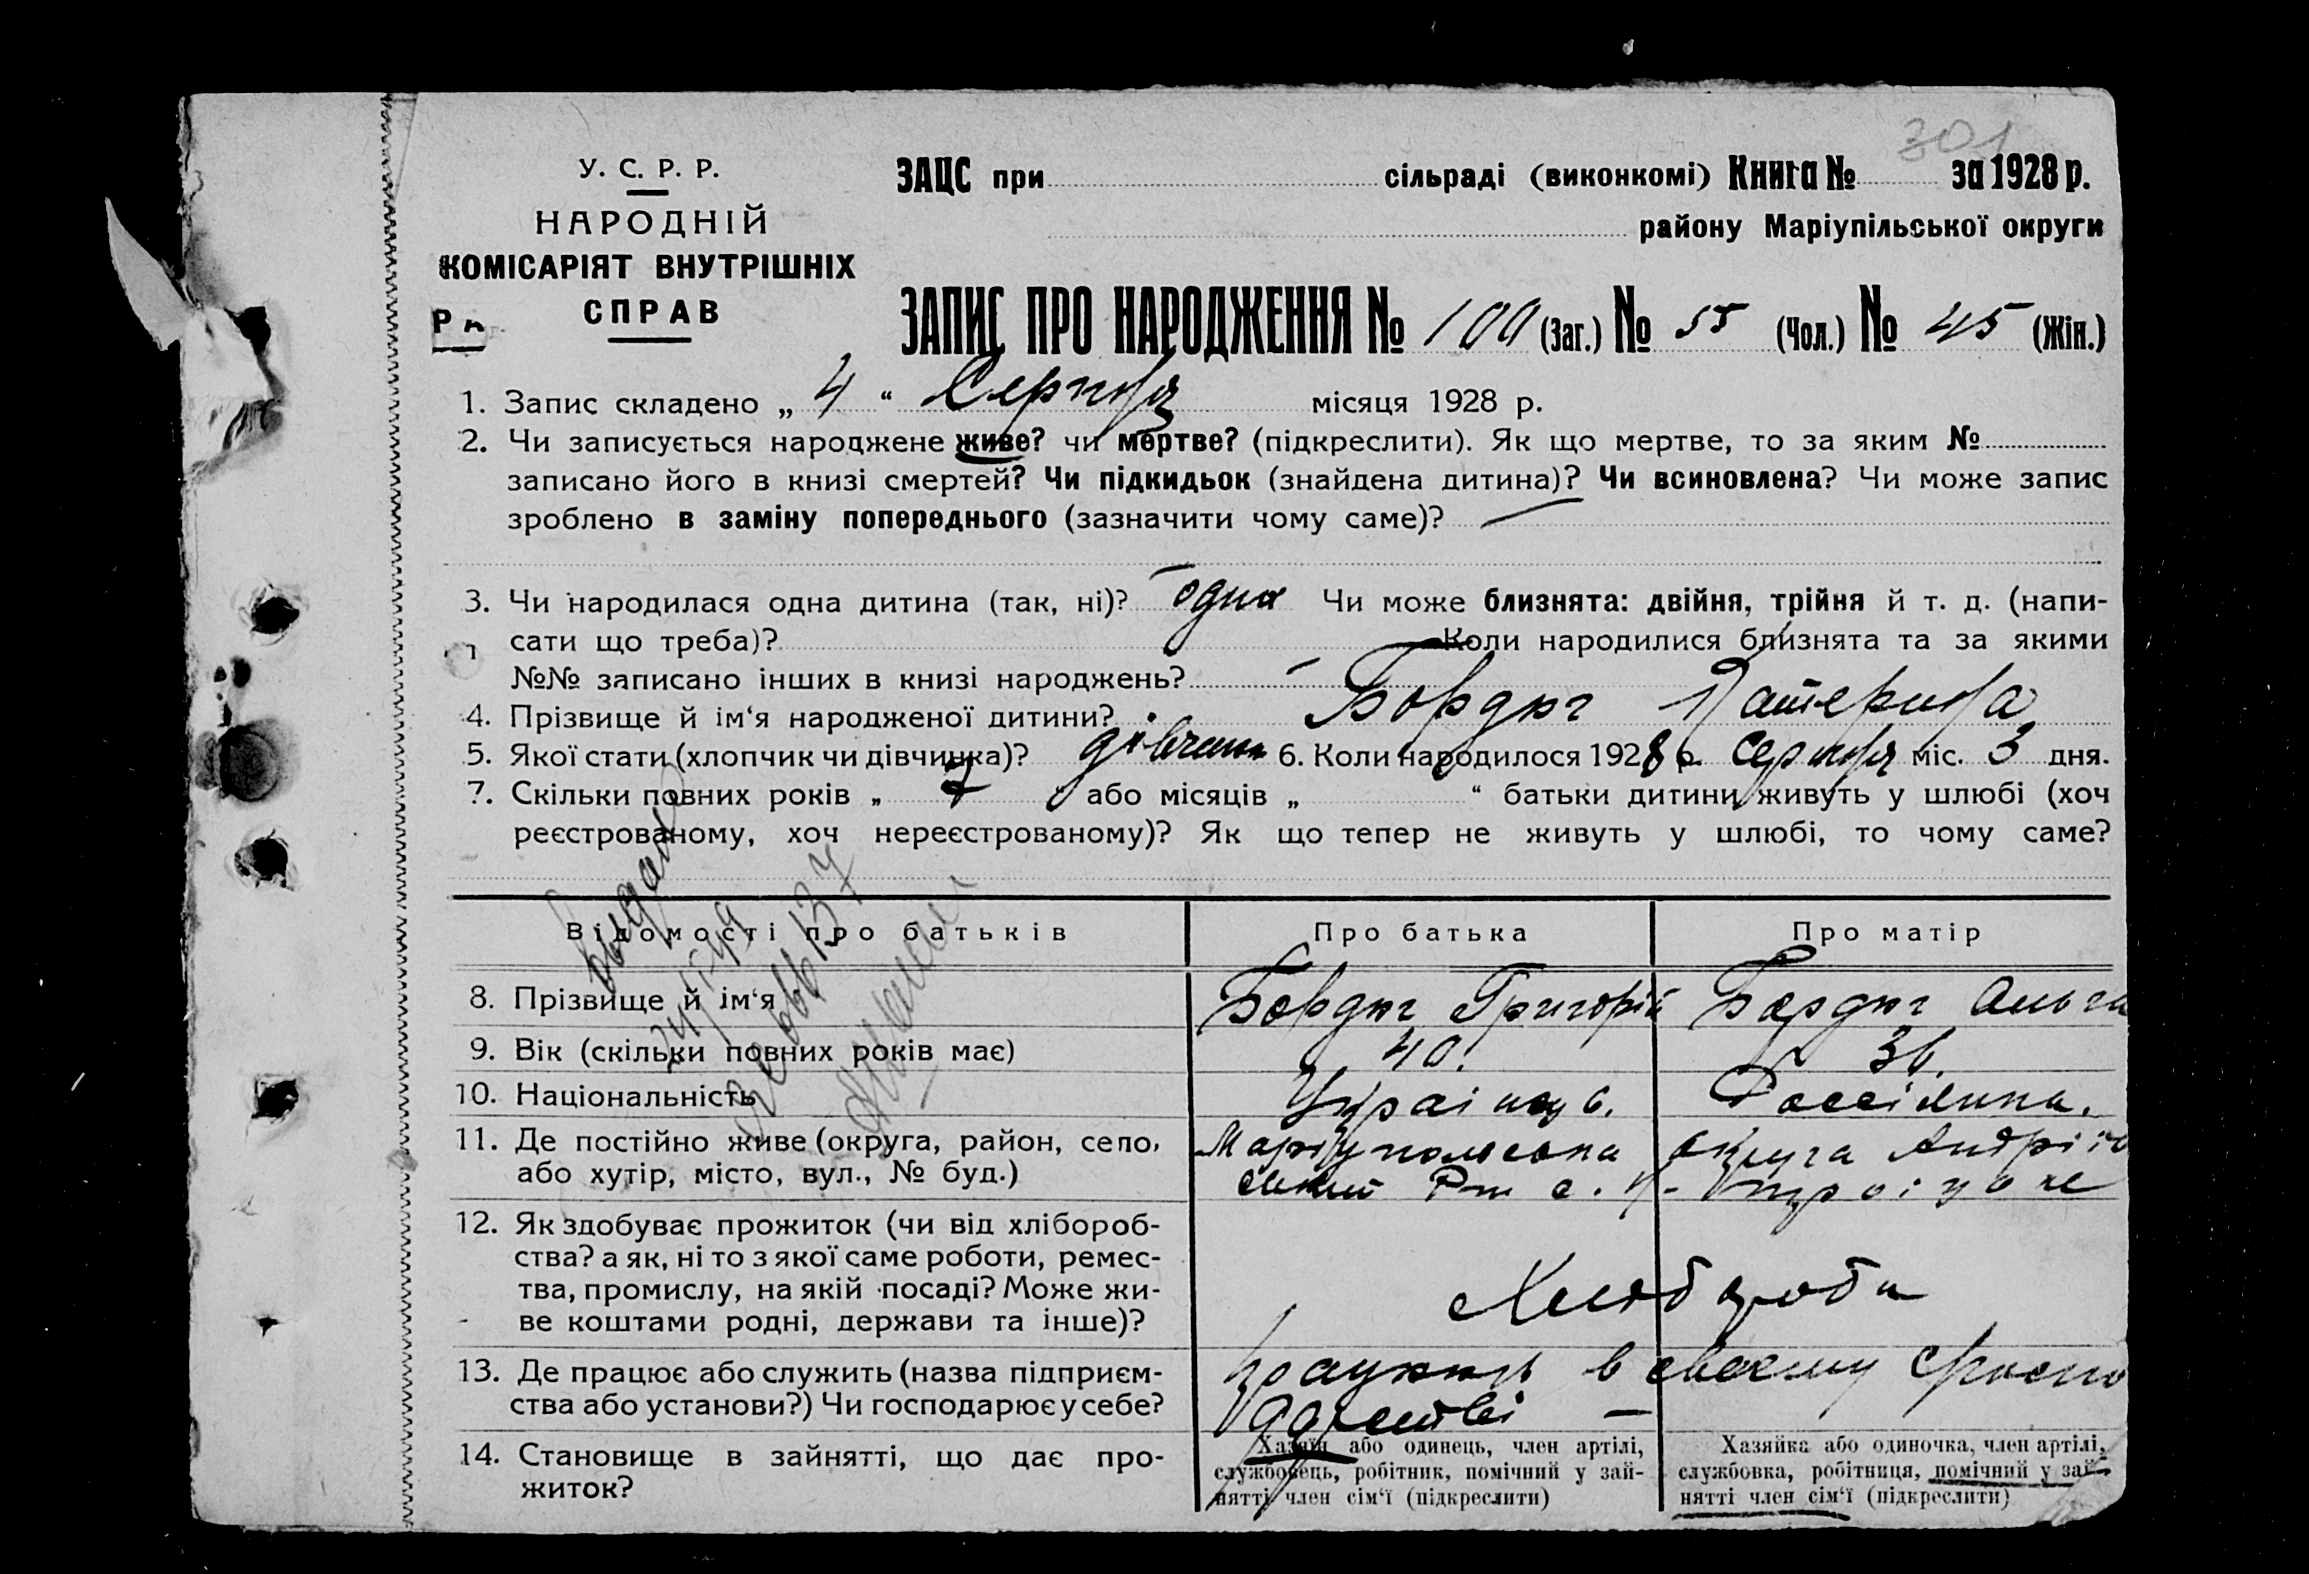 301
У. С. Р. Р.
НАРОДНІЙ
КОМІСАРІЯТ ВНУТРІШНІХ
СПРАВ
ЗАЦС при сільраді (виконкомі) Книга № за 1928 р.
району Маріупільської округи
ЗАПИС ПРО НАРОДЖЕННЯ № 100 (Заг.) № 55 (Чол.) № 45 (Жін.)
1. Запис складено „ 4 “ Серпня місяця 1928 р.
2. Чи записується народжене живе? чи мертве? (підкреслити). Як що мертве, то за яким №
записано його в книзі смертей? Чи підкидьок (знайдена дитина)? Чи всиновлена? Чи може запис
зроблено в заміну попереднього (зазначити чому саме)? —
3. Чи народилася одна дитина (так, ні)? одна Чи може близнята: двійня, трійня й т. д. (напи-
сати що треба)? Коли народилися близнята та за якими
№№ записано інших в книзі народжень? —
4. Прізвище й ім‘я народженої дитини? Бордюг Катерина
5. Якої стати (хлопчик чи дівчинка)? дівчина 6. Коли народилося 1928 р. Серпня міс. 3 дня.
7. Скільки повних років „ 7 “ або місяців „ “ батьки дитини живуть у шлюбі (хоч
реєстрованому, хоч нереєстрованому)? Як що тепер не живуть у шлюбі, то чому саме?
Відомості про батьків Про батька Про матір
8. Прізвище й ім‘я Бордюг Григорій Бордюг Ольга
9. Вік (скільки повних років має) 40. 36.
10. Національність Україนець. Россіянка.
11. Де постійно живе (округа, район, село, Маріупольська округа Андріїв
або хутір, місто, вул., № буд.) ський Р-н с.
12. Як здобуває прожиток (чи від хлібороб-
ства? а як, ні то з якої саме роботи, ремес-
тва, промислу, на якій посаді? Може жи-
ве коштами родні, держави та інше)?
Хлібороби
13. Де працює або служить (назва підприєм- працюють в своєму Госпо
ства або установи?) Чи господарює у себе? дарстві —
14. Становище в зайнятті, що дає про-
житок?
Хазяїн або одинець, член артілі,
службовець, робітник, помічний у зай-
нятті член сім‘ї (підкреслити)
Хазяйка або одиночка, член артілі,
службовка, робітниця, помічний у зай-
нятті член сім‘ї (підкреслити)